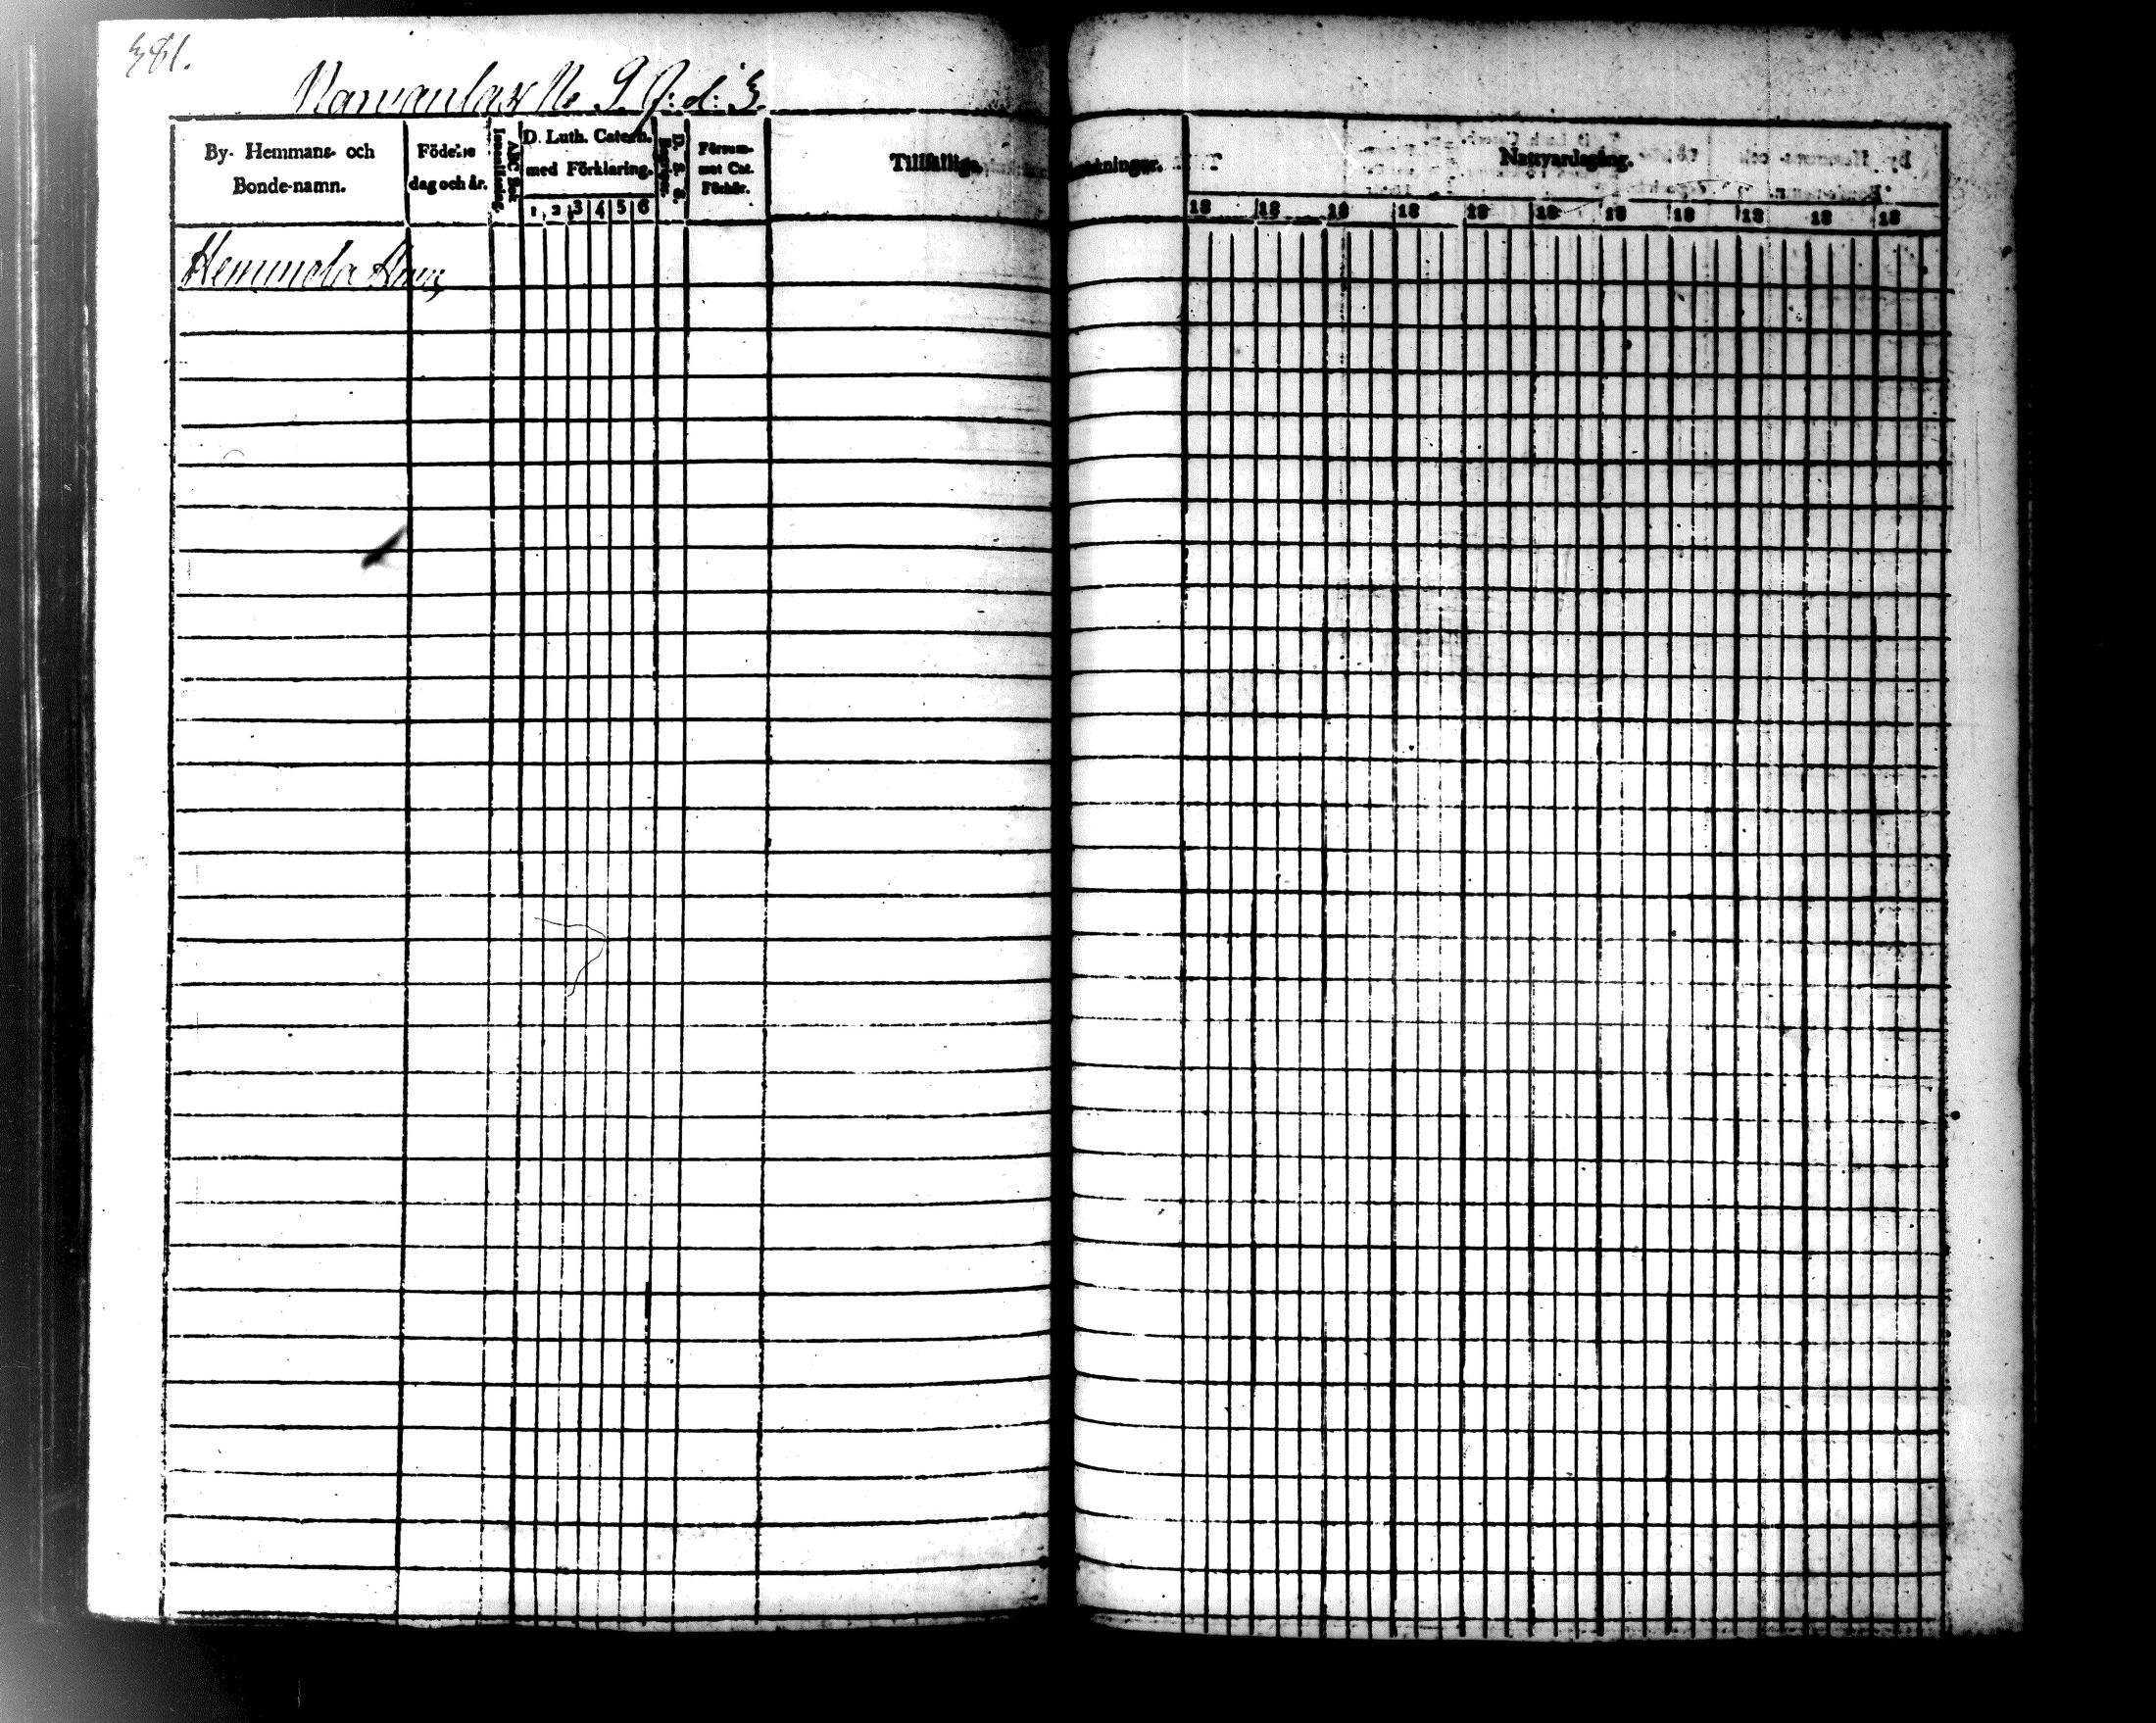 381.
Narvanlax No 9 J: d: 3.
By- Hemmans- och Bonde-namn.
Födelse dag och år.
ABC Bok Innanläsning
D. Luth. Catech. med Förklaring.
1 2 3 4 5 6
D. S. S. Begrepp.
Försummot Cat. Förhör.
Tillfällige Anmärkningar.
Nattvardsgång.
18 18 18 18 18 18 18 18 18 18 18
Hemmola